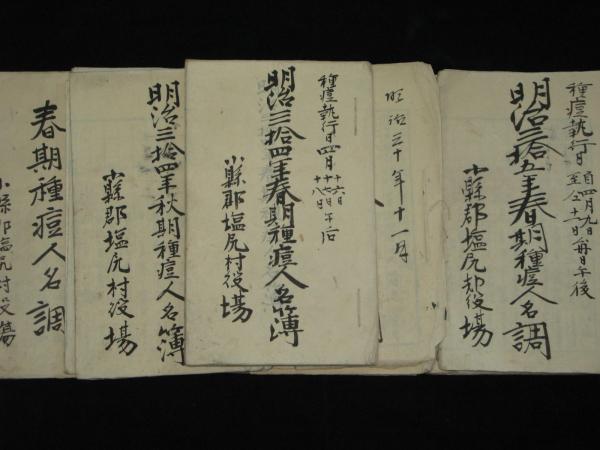 種痘執行日 自四月九日 至仝十一日 毎日午後
明治三拾五年春期種痘人名調
小縣郡塩尻村役場
明治三十年十一月
種痘執行日四月 十六日 十七日 十八日 午后
明治三拾四年春期種痘人名簿
小縣郡塩尻村役場
明治三拾四年秋期種痘人名簿
小縣郡塩尻村役場
春期種痘人名調
小縣郡塩尻村役場